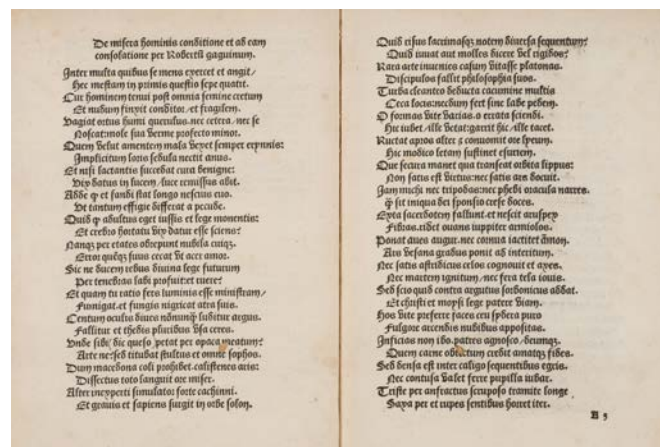 De misera hominis conditione et ad eam
consolatione per Robertū gaguinum.
Inter multa quibus se mens exercet et angit/
Hec mestam in primis questio sepe quatit.
Cur hominem tenui post omnia semine cretum
Et nudum finxit conditor/et fragilem.
Vagiat ortus humi querulus.nec cetera/nec se
Noscat:mole sua verme profecto minor.
Quem velut amentem mala vexet semper erynnis:
Implicitum loris sedula nectit anus.
Et nisi lactantis succedat cura benigne:
Vix datus in lucem/luce remissus abit.
Adde ꝙ et fandi stat longo nescius euo.
Ut tantum effigie differat a pecude.
Quid ꝙ adultus eget iussis et lege monentis:
Et crebro hortatu vix datur esse sciens?
Nanqꝫ per etates obrepunt nubila cuiqꝫ.
Error quēqꝫ suus cecat et acer amor.
Sic ne ducem rebus diuina lege futurum
Per tenebras labi profuit:et ruere?
Et quam tu ratio fers luminis esse ministram/
Fumigat et fungis nigricat atra suis.
Centum oculis diues nōnunꝙ̄ luditur argus.
Fallitur et thedis pluribus vsa cerea.
Unde sibi/dic queso/petat per opaca meatum?
Arte ne:sed titubat stultus et omne sophos.
Dum macedona coli prohibet calistenes aris:
Dissectus toto languit ore miser.
Alter inexperti simulator forte cachinni.
Et grauis et sapiens surgit in orbe solon.
Quid risus lacrimasqꝫ notem diuersa sequentum?
Quid iuuat aut molles dicere vel rigidos?
Rara arte inuenies casum vitasse platonas.
Discipulos fallit philosophia suos.
Turba cleanteo deducta cacumine multis
Ceca locis:necdum fert sine labe pedem.
O formas vite varias.o errata sciendi.
Hic iubet/ille vetat:garrit hic/ille tacet.
Ructat apros alter et conuomit ore lyeum.
Hic modico letam sustinet esuriem.
Que secura manet qua transeat orbita lippus:
Non satis est virtus:nec satis ars docuit.
Iam michi nec tripodas:nec phebi oracula narres.
ꝙ sit iniqua dei sponsio crese doces.
Exta sacerdotem fallunt et nescit aruspex
Fibras.ridet ouans iuppiter armiolos.
Ponat aues augur.nec cornua iactitet āmon.
Ars vesana gradus ponit ad interitum.
Nec satis astridicus celos cognouit et axes.
Nec martem ignitum/nec fera tela iouis.
Sed scio quid contra argutus sorbonicus addat.
Et christi et moysi lege patere viam.
Hos vite preferre faces ceu sphera puro
Fulgore accendis nubibus appositas.
Inficias non ibo.patres agnosco/deumqꝫ.
Quem carne obtectum credit amatqꝫ fides.
Sed densa est inter caligo sequentibus egris.
Nec contusa valet ferre pupilla iubar.
Triste per anfractus scruposo tramite longe
Saxa per et rupes sentibus horret iter.